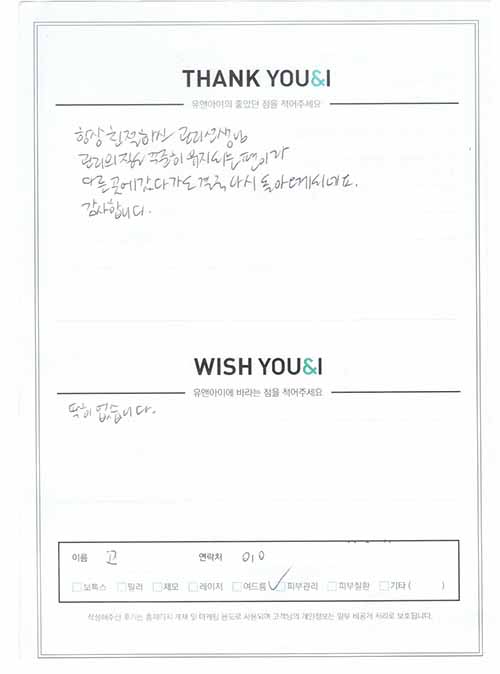 THANK YOU&I
유앤아이의 좋았던 점을 적어주세요
항상 친절하신 관리선생님
관리의 질이 꾸준히 유지되는 편이라
다른 곳에 갔다가도 결국 다시 돌아
감사합니다.
WISH YOU&I
유앤아이에 바라는 점을 적어주세요
딱히 없습니다.
이름 고 연락처 010
보톡스 필러 제모 레이저 여드름 피부관리 피부질환 기타 ( )
작성해주신 후기는 홈페이지 게재 및 마케팅 용도로 사용되며 고객님의 개인정보는 일부 비공개 처리로 보호됩니다.